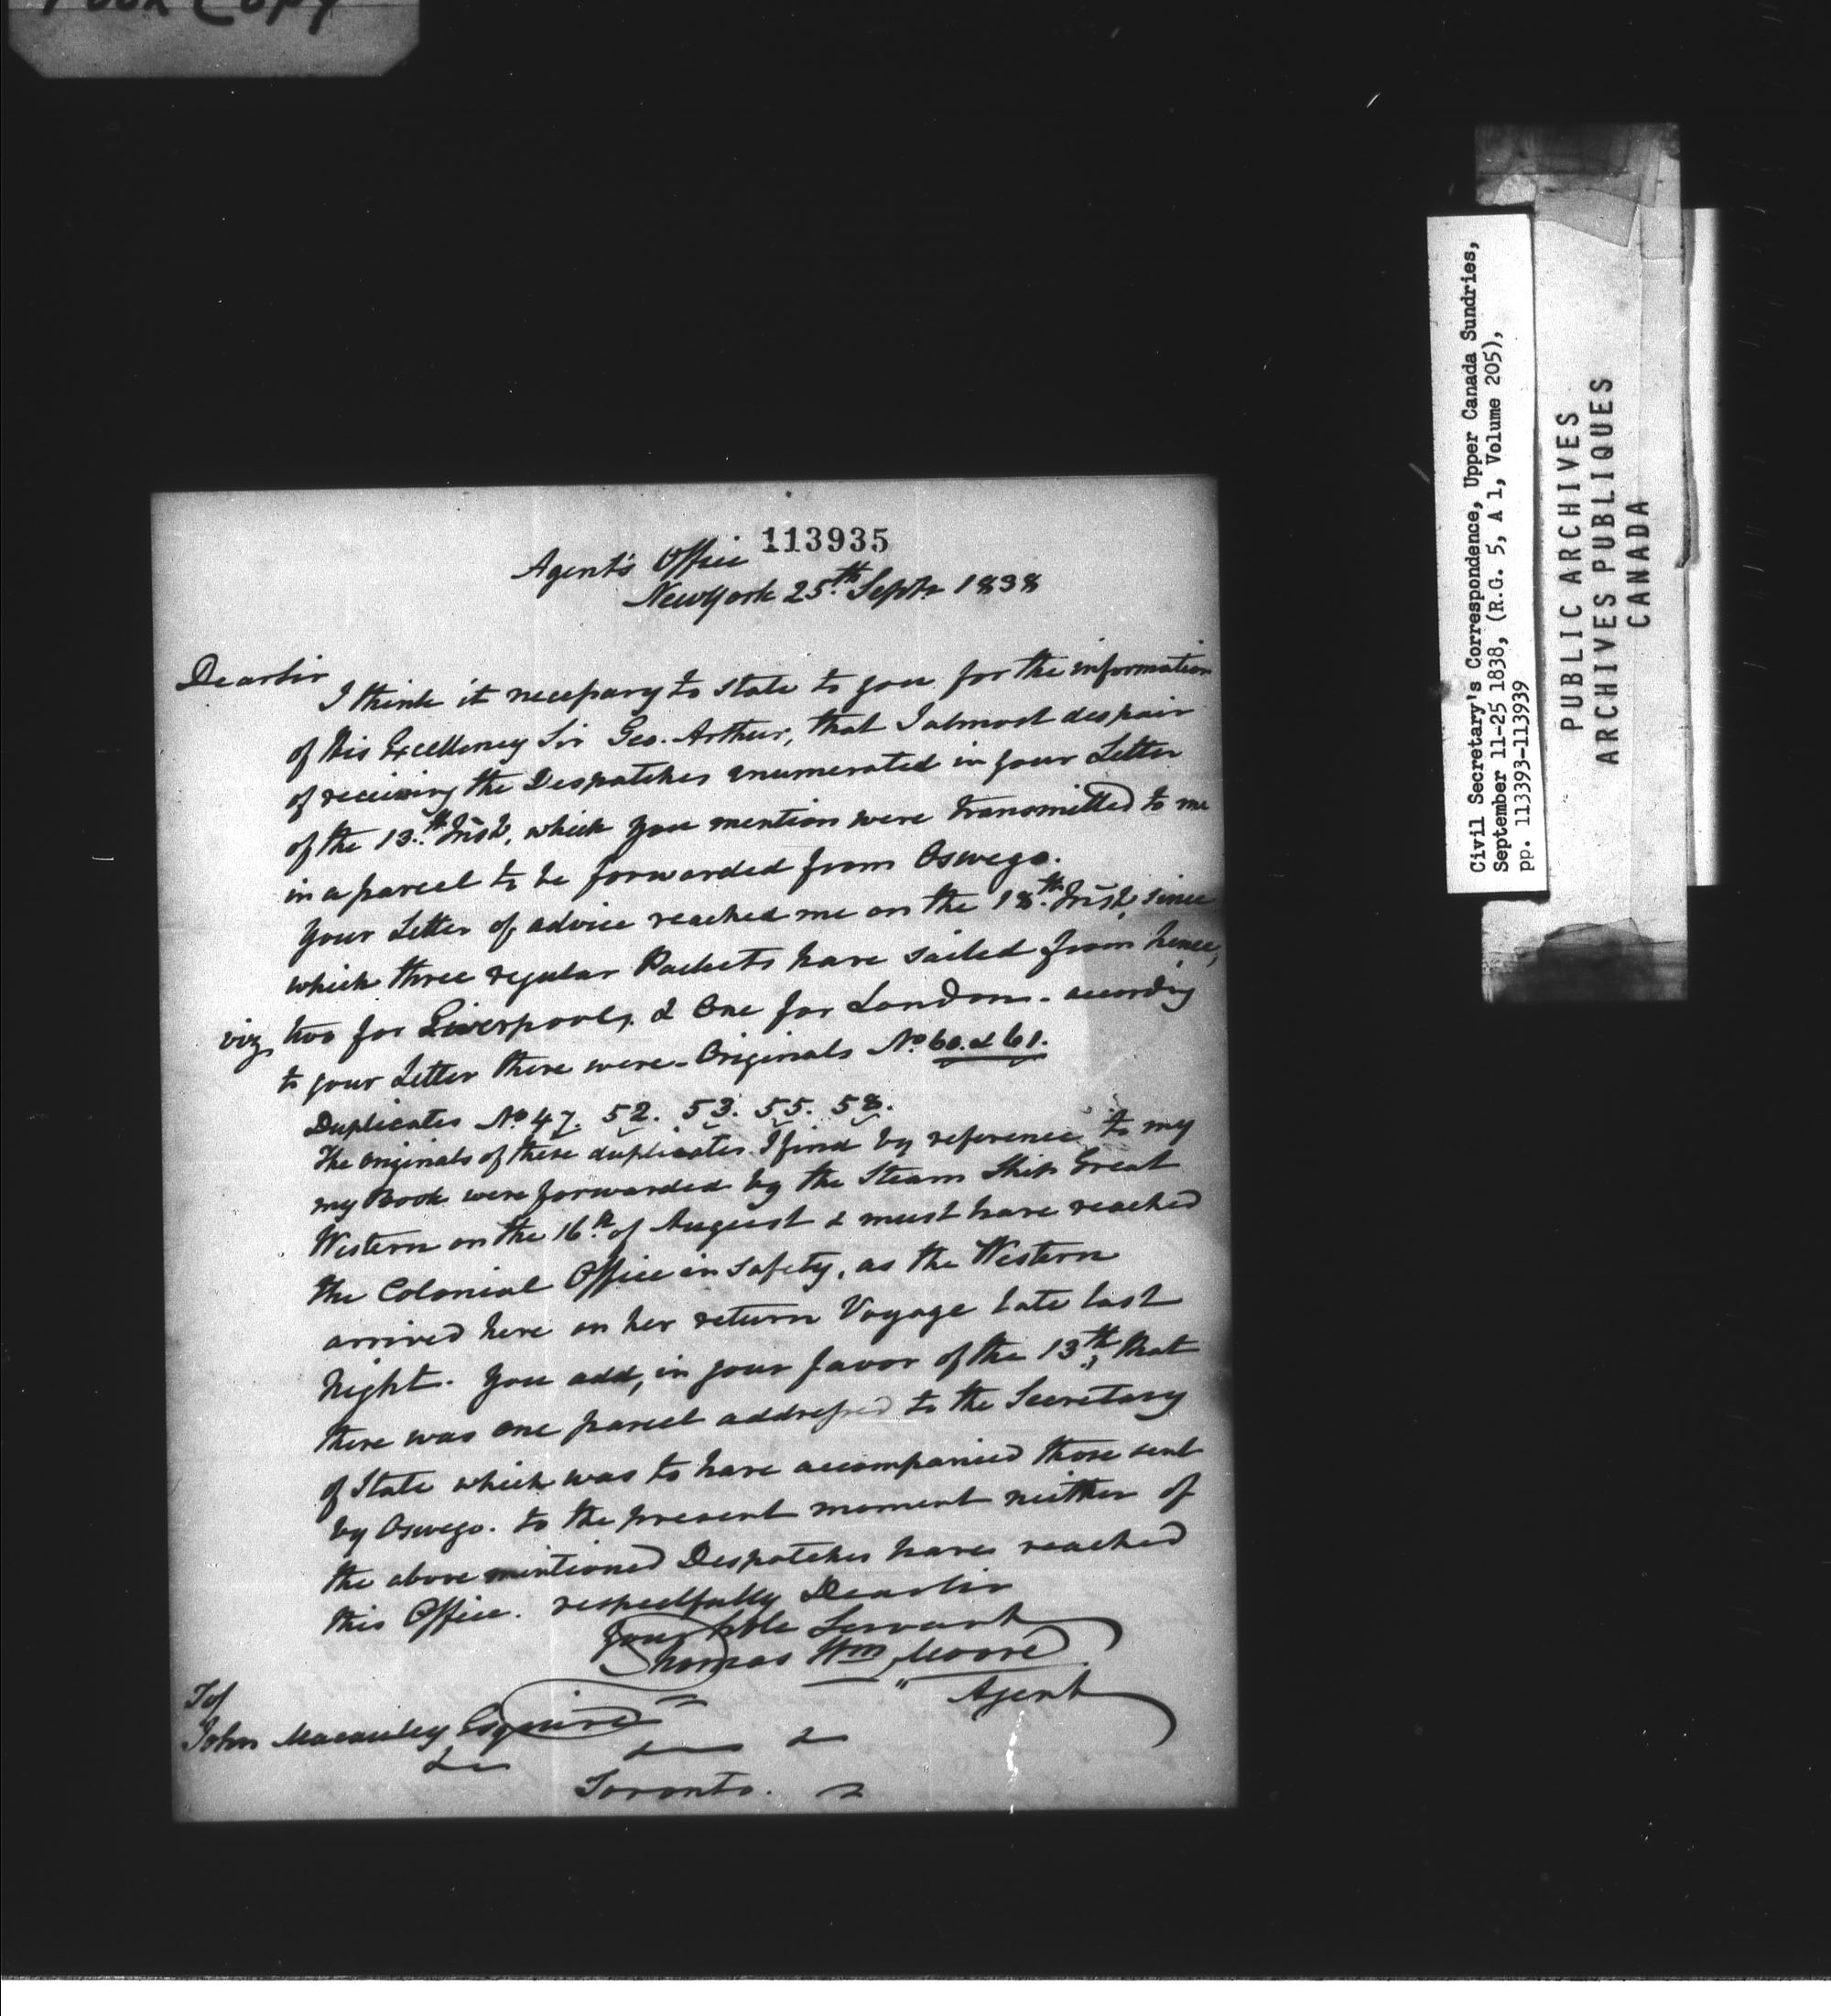 Poor Copy
113935
Agent's Office
New York 25th Septr 1838
Dear Sir
I think it necessary to state to you for the information
of His Excellency Sir Geo. Arthur, that I almost despair
of receiving the Despatches enumerated in your Letter
of the 13th Inst, which you mention were transmitted to me
in a parcel to be forwarded from Oswego.
Your Letter of advice reached me on the 18th Inst, since
which three regular Packets have sailed from hence,
viz, two for Liverpool, & One for London - according
to your Letter there were - Originals No. 60. & 61.
Duplicates No. 47. 52. 53. 55. 58.
The originals of these duplicates I find by reference to my
my Book were forwarded by the Steam Ship Great
Western on the 16th of August & must have reached
the Colonial Office in safety, as the Western
arrived here on her return Voyage late last
Night. You add, in your favor of the 13th, that
there was one parcel addressed to the Secretary
of State which was to have accompanied those sent
by Oswego. to the present moment neither of
the above mentioned Despatches have reached
this Office. respectfully Dear Sir
Your Hble Servant
Thomas Wm Moore
Agent
To
John Macaulay Esquire
&c &c &c
Toronto.
Civil Secretary's Correspondence, Upper Canada Sundries,
September 11-25 1838, (R.G. 5, A 1, Volume 205),
pp. 113393-113939
PUBLIC ARCHIVES
ARCHIVES PUBLIQUES
CANADA